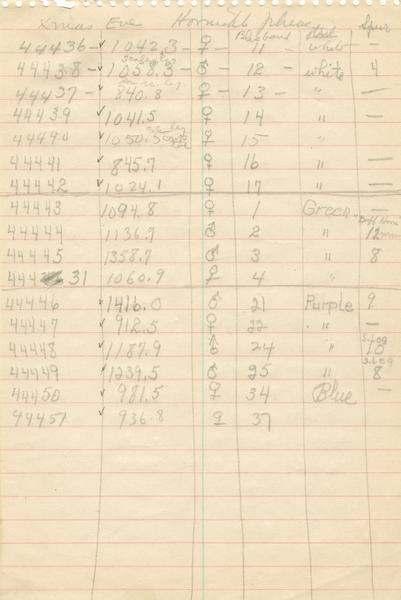 Xmas Eve Hornicki pheas Spur
Bluband white
44436 - ✓ 1042.3 - ♀ - 11 - white -
scaly leg
44438 - ✓ 1058.3 - ♂ - 12 - white 4
44437 - ✓ 840.8 - ♀ - 13 - " -
44439 ✓ 1041.5 ♀ 14 " -
44440 ✓ 1050.5 ♀ 15 "
44441 ✓ 845.7 ♀ 16 " -
44442 ✓ 1024.1 ♀ 17 " -
44443 1094.8 ♀ 1 Green -
44444 1136.7 ♂ 2 " 12mm
44445 1358.7 ♂ 3 " 8
444 31 1060.9 ♀ 4 "
44446 ✓ 1416.0 ♂ 21 Purple 9
44447 ✓ 912.5 ♀ 22 " -
44448 ✓ 1187.9 ♂ 24 " 10
44449 ✓ 1239.5 ♂ 25 " 8
44450 ✓ 981.5 ♀ 34 Blue -
44451 ✓ 936.8 ♀ 37